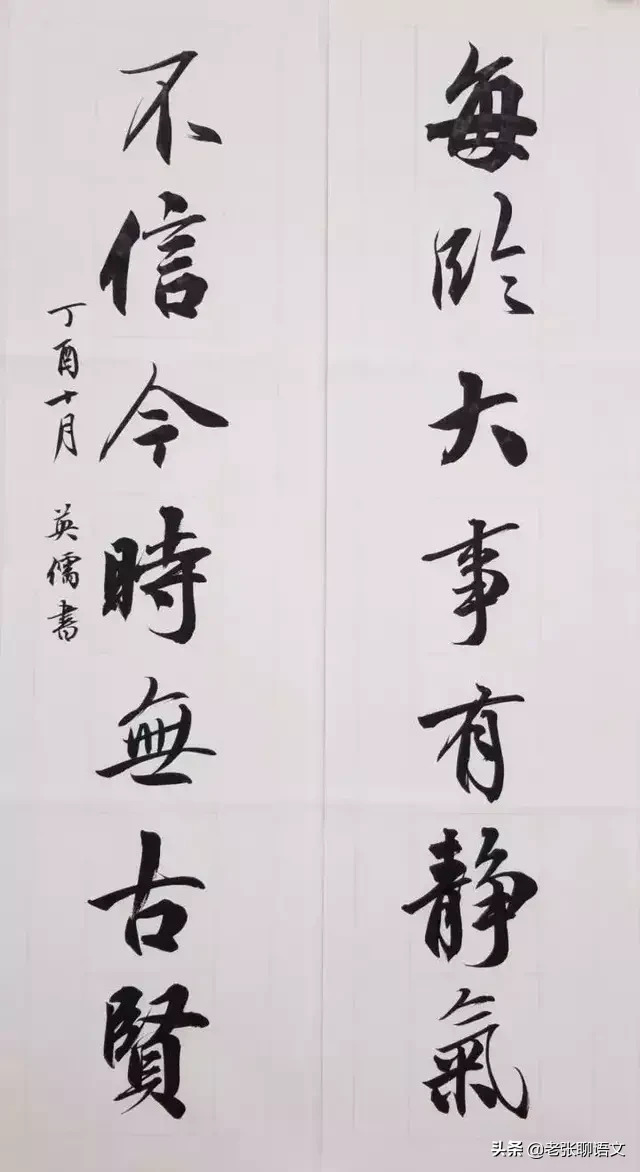 每臨大事有靜氣
不信今時無古賢
丁酉十月 英儒書
头条 @老张聊语文